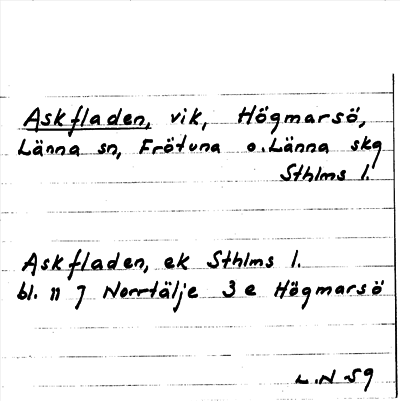 Askfladen, vik, Högmarsö,
Länna sn, Frötuna o. Länna skg
Sthlms l.
Askfladen, ek Sthlms l.
bl. 11 7 Norrtälje 3 e Högmarsö
L.N 59